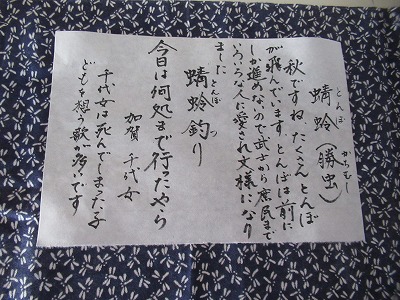 とんぼ　かちむし
蜻蛉（勝虫）
秋ですね、たくさんとんぼ
が飛んでいます。とんぼは前に
しか進めないので武士から庶民まで
いろいろな人に愛され文様になり
ました
とんぼ　つ
蜻蛉釣り
今日は何処まで行ったやら
加賀　千代女
千代女は死んでしまった子
どもを想う歌が多いです